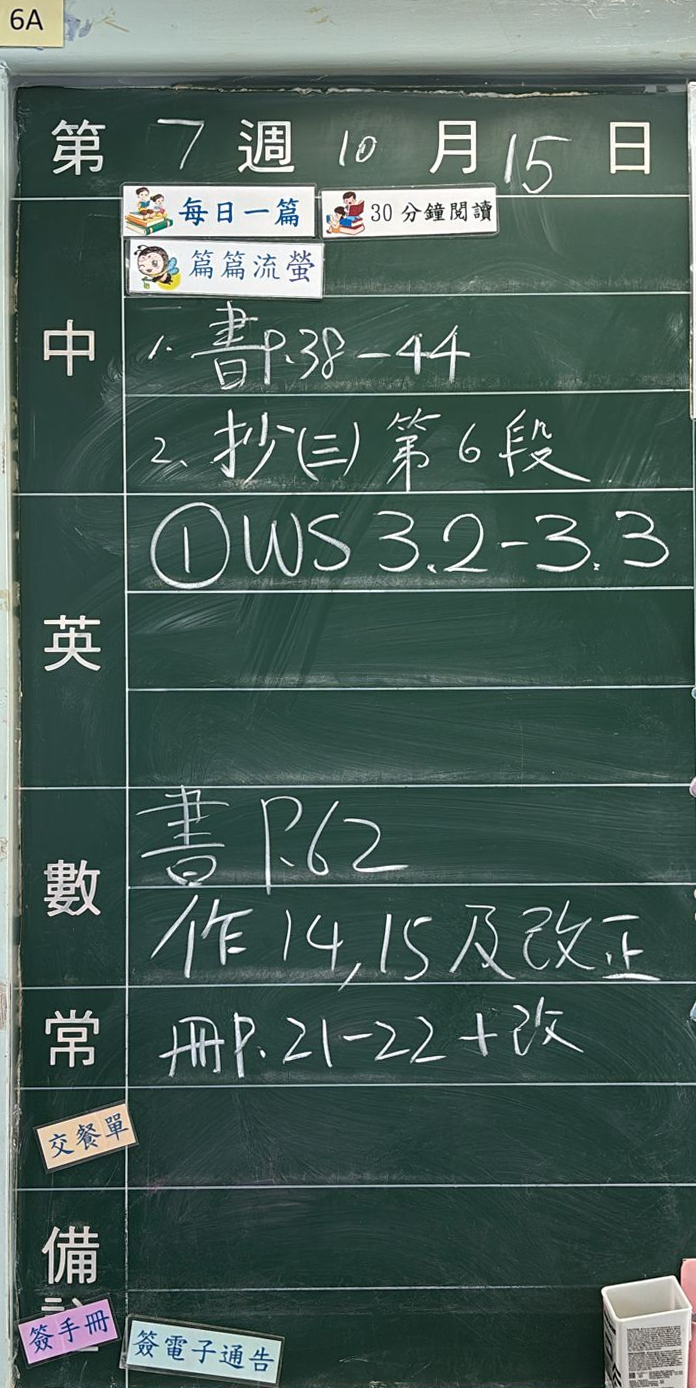 6A
第 7 週 10 月 15 日
每日一篇 30分鐘閱讀
篇篇流螢
中
1. 書P.38-44
2. 抄(三)第6段
英
①WS 3.2-3.3
數
書 P.62
作14,15及改正
常
冊P.21-22+改
交餐單
備
簽手冊
簽電子通告